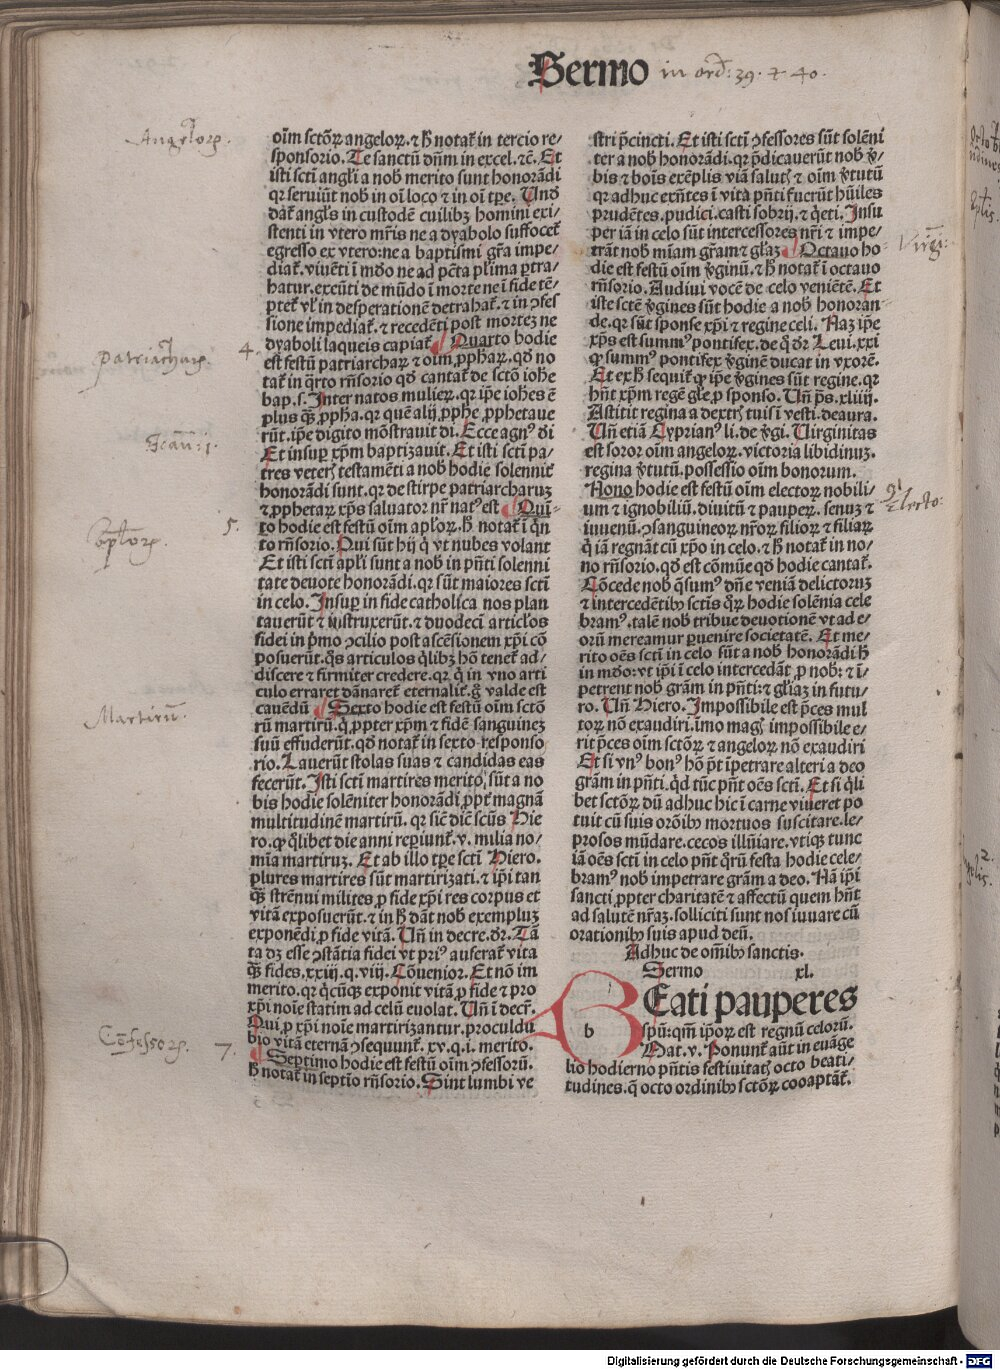 Sermo in ord: 39. et 40.
Angelorꝝ.
oim̄ sctōꝝ angeloꝝ. ⁊ ħ notaṫ in tercio re/
sponsorio. Te sanctū dn̄m in excel. ⁊c̄. Et
isti scti angli̇ a nob̄ merito sunt honorādi
qr seruiūt nob̄ in oi̇ loco ⁊ in oi̇ tp̄e. Unō
daṫ angl̇s in custodē cuilibꝫ homini exi/
stenti in vtero mr̄is ne a dyabolo suffoceṫ
egresso ex vtero: ne a baptismi gr̄a impe/
diaṫ. viuēti ī mōdo ne ad pc̄ta pl̇ima ꝑtra/
hatur. exeūti de mūdo ī morte ne ī fide tē/
pteṫ vl̇ in desperationē detrahaṫ. ⁊ in ꝯfes
sione impediaṫ. ⁊ recedēti post mortez ne
dyaboli laqueis capiaṫ. Quarto hodie
Patriacharꝝ. 4.
est festū patriarchaꝝ ⁊ oim̄ ꝓphaꝝ. qd̄ no
taṫ in qrto rn̄sorio qd̄ cantaṫ de sctō iohe
bap. s. Inter natos mulieꝝ. qr ip̄e iohes ē
plus q̄ꝫ ꝓpha. qr quē alij ꝓphe ꝓphetaue
rūt. ip̄e digito mōstrauit di. Ecce agnꝰ di
Et insuꝑ xp̄m baptizauit. Et isti scti pa/
tres veterꝭ testamēti a nob̄ hodie solenniṫ
honorādi sunt. qr de stirpe patriarcharuꝫ
⁊ ꝓphetaꝝ xp̄s saluator nr̄ natꝰ est Qui/
5.
to hodie est festū oim̄ apl̇oꝝ. ħ notaṫ ī qn̄
to rn̄sorio. Qui sūt hij q̇ vt nubes volant
Et isti sctī apl̇i sunt a nob̄ in pn̄ti solenni
tate deuote honorādi. qr sūt maiores sctī
in celo. Insuꝑ in fide catholica nos plan
tauerūt ⁊ instruxerūt. ⁊ duodeci articl̇os
fidei in p̄mo ꝯcilio post ascēsionem xp̄i cō
posuerūt. q̄s articulos q̇libꝫ hō teneṫ ad/
discere ⁊ firmiter credere. qr q̇ in vno arti
culo erraret dānareṫ eternaliṫ. g̊ valde est
cauēdū Sexto hodie est festū oim̄ sctō
Martirū.
rū martirū. q̇ ꝓpter xp̄m ⁊ fidē sanguinez
suū effuderūt. qd̄ notaṫ in sexto responso
rio. Lauerūt stolas suas ⁊ candidas eas
fecerūt. Isti scti martires merito sūt a no
bis hodie solēniter honorādi ꝓpṫ magnā
multitudinē martirū. qr siē diē sciūs Hie
ro. ꝙ q̇libet die anni reꝑiunṫ. v. milia no/
mīa martiruꝫ. Et ab illo tp̄e scti Hiero.
plures martires sūt martirizati. ⁊ ip̄i tan
q̄ꝫ strēnui milites ꝓ fide xp̄i res corpus et
vitā exposuerūt. ⁊ in ħ dāt nob̄ exempluꝫ
exponēdi ꝓ fide vitā. Un̄ in decre. dr. Tā
ta dꝫ esse ꝯstātia fidei vt priꝰ auferaṫ vita
q̄ꝫ fides. xxiij. q. vij. Cōuenior. Et nō im
merito. qr q̇cūqꝫ exponit vitā ꝓ fide ⁊ pro
xp̄i noīe statim ad celū euolat. Un̄ ī decr̄.
Qui ꝓ xp̄i noīe martirizantur. proculdu
Cōfessorꝝ. 7.
bio vitā eternā ꝯsequunṫ. xv. q. i. merito.
Septimo hodie est festū oim̄ ꝯfessorū.
ħ notaṫ in septīo rn̄sorio. Sint lumbi ve
stri p̄cincti. Et isti scti ꝯfessores sūt solēni
ter a nob̄ honorādi. qr p̄dicauerūt nob̄ v̄
bis ⁊ bois exēplis viā saluꝭ ⁊ oim̄ v̄tutū
qr adhuc exn̄tes ī vita pn̄ti fuerūt hūiles
prudētes. pudici. casti sobrij. ⁊ q̇eti. Insu
per iā in celo sūt intercessores nr̄i ⁊ impe/
trāt nob̄ mīam gr̄am ⁊ gl̄az Octauo ho
Virgi:
die est festū oim̄ v̄ginū. ⁊ ħ notaṫ ī octauo
rn̄sorio. Audiui vocē de celo veniētē. Et
iste sctē v̄gines sūt hodie a nob̄ honoran
de. qr sūt sponse xp̄i ⁊ regine celi. Naꝫ ip̄e
xp̄s est summꝰ pontifex. de q̇ dr̄ Leui. xxi
ꝙ summꝰ pontifex v̄ginē ducat in vxorē.
Et ex ħ sequiṫ ꝙ ip̄e v̄gines sūt regine. qr
hn̄t xp̄m regē gl̄e ꝓ sponso. Un̄ p̄s. xliiij.
Astitit regina a dextrꝭ tuis ī vesti. deaura.
Un̄ etiā Cyprianꝰ li. de v̄gi. Uirginitas
est soror oim̄ angeloꝝ. victoria libidinuꝫ.
regina v̄tutū. possessio oim̄ bonorum.
Nono hodie est festū oim̄ electoꝝ nobili/
um ⁊ ignobiliū. diuitū ⁊ pauꝑꝝ. senuꝫ ⁊
iuuenū. ꝯsanguineoꝝ nr̄oꝝ filioꝝ ⁊ filiaꝝ
q̇ iā regnāt cū xp̄o in celo. ⁊ ħ notaṫ in no/
no rn̄sorio. qd̄ est cōmūe qd̄ hodie cantaṫ.
Cōcede nob̄ q̄sumꝰ dn̄e veniā delictoruꝫ
⁊ intercedētibꝰ sctis q̄ꝝ hodie solēnia cele
bramꝰ. talē nob̄ tribue deuotionē vt ad e/
orū mereamur ꝑuenire societatē. Et me/
rito oēs scti in celo sūt a nob̄ honorādi ħ
in mōo: vt ip̄i ī celo intercedāt ꝓ nob̄: ⁊ ī/
petrent nob̄ gr̄am in pn̄ti: ⁊ gl̄iaꝫ in futu/
ro. Un̄ Hiero. Impossibile est p̄ces mul
toꝝ nō exaudiri. imo magꝭ impossibile e/
rit p̄ces oim̄ sctōꝝ ⁊ angeloꝝ nō exaudiri
Et si vnꝰ bonꝰ hō pt̄ īpetrare alteri a deo
gr̄am in pn̄ti. q̇d tūc pn̄t oēs sctī. Et si q̇li
bet sctōꝝ dū adhuc hic ī carne viueret po
tuit cū suis orōibꝰ mortuos suscitare. le/
prosos mūdare. cecos illūiare. vtiqꝫ tunc
iā oēs scti in celo pn̄t q̇rū festa hodie cele/
bramꝰ nob̄ impetrare gr̄am a deo. Nā ip̄i
sancti ꝓpter charitatē ⁊ affectū quem hn̄t
ad salutē nr̄aꝫ. solliciti sunt nos iuuare cū
orationibꝰ suis apud deū.
Adhuc de omībꝰ sanctis.
Sermo xl.
BEati pauperes
b spū: qm̄ ip̄oꝝ est regnū celorū.
Mat. v. Ponunṫ aūt in euāge
lio hodierno pn̄tis festiuitaꝭ octo beati/
tudines. q̄ octo ordinibꝰ sctōꝝ cooaptāṫ.
Digitalisierung gefördert durch die Deutsche Forschungsgemeinschaft - DFG